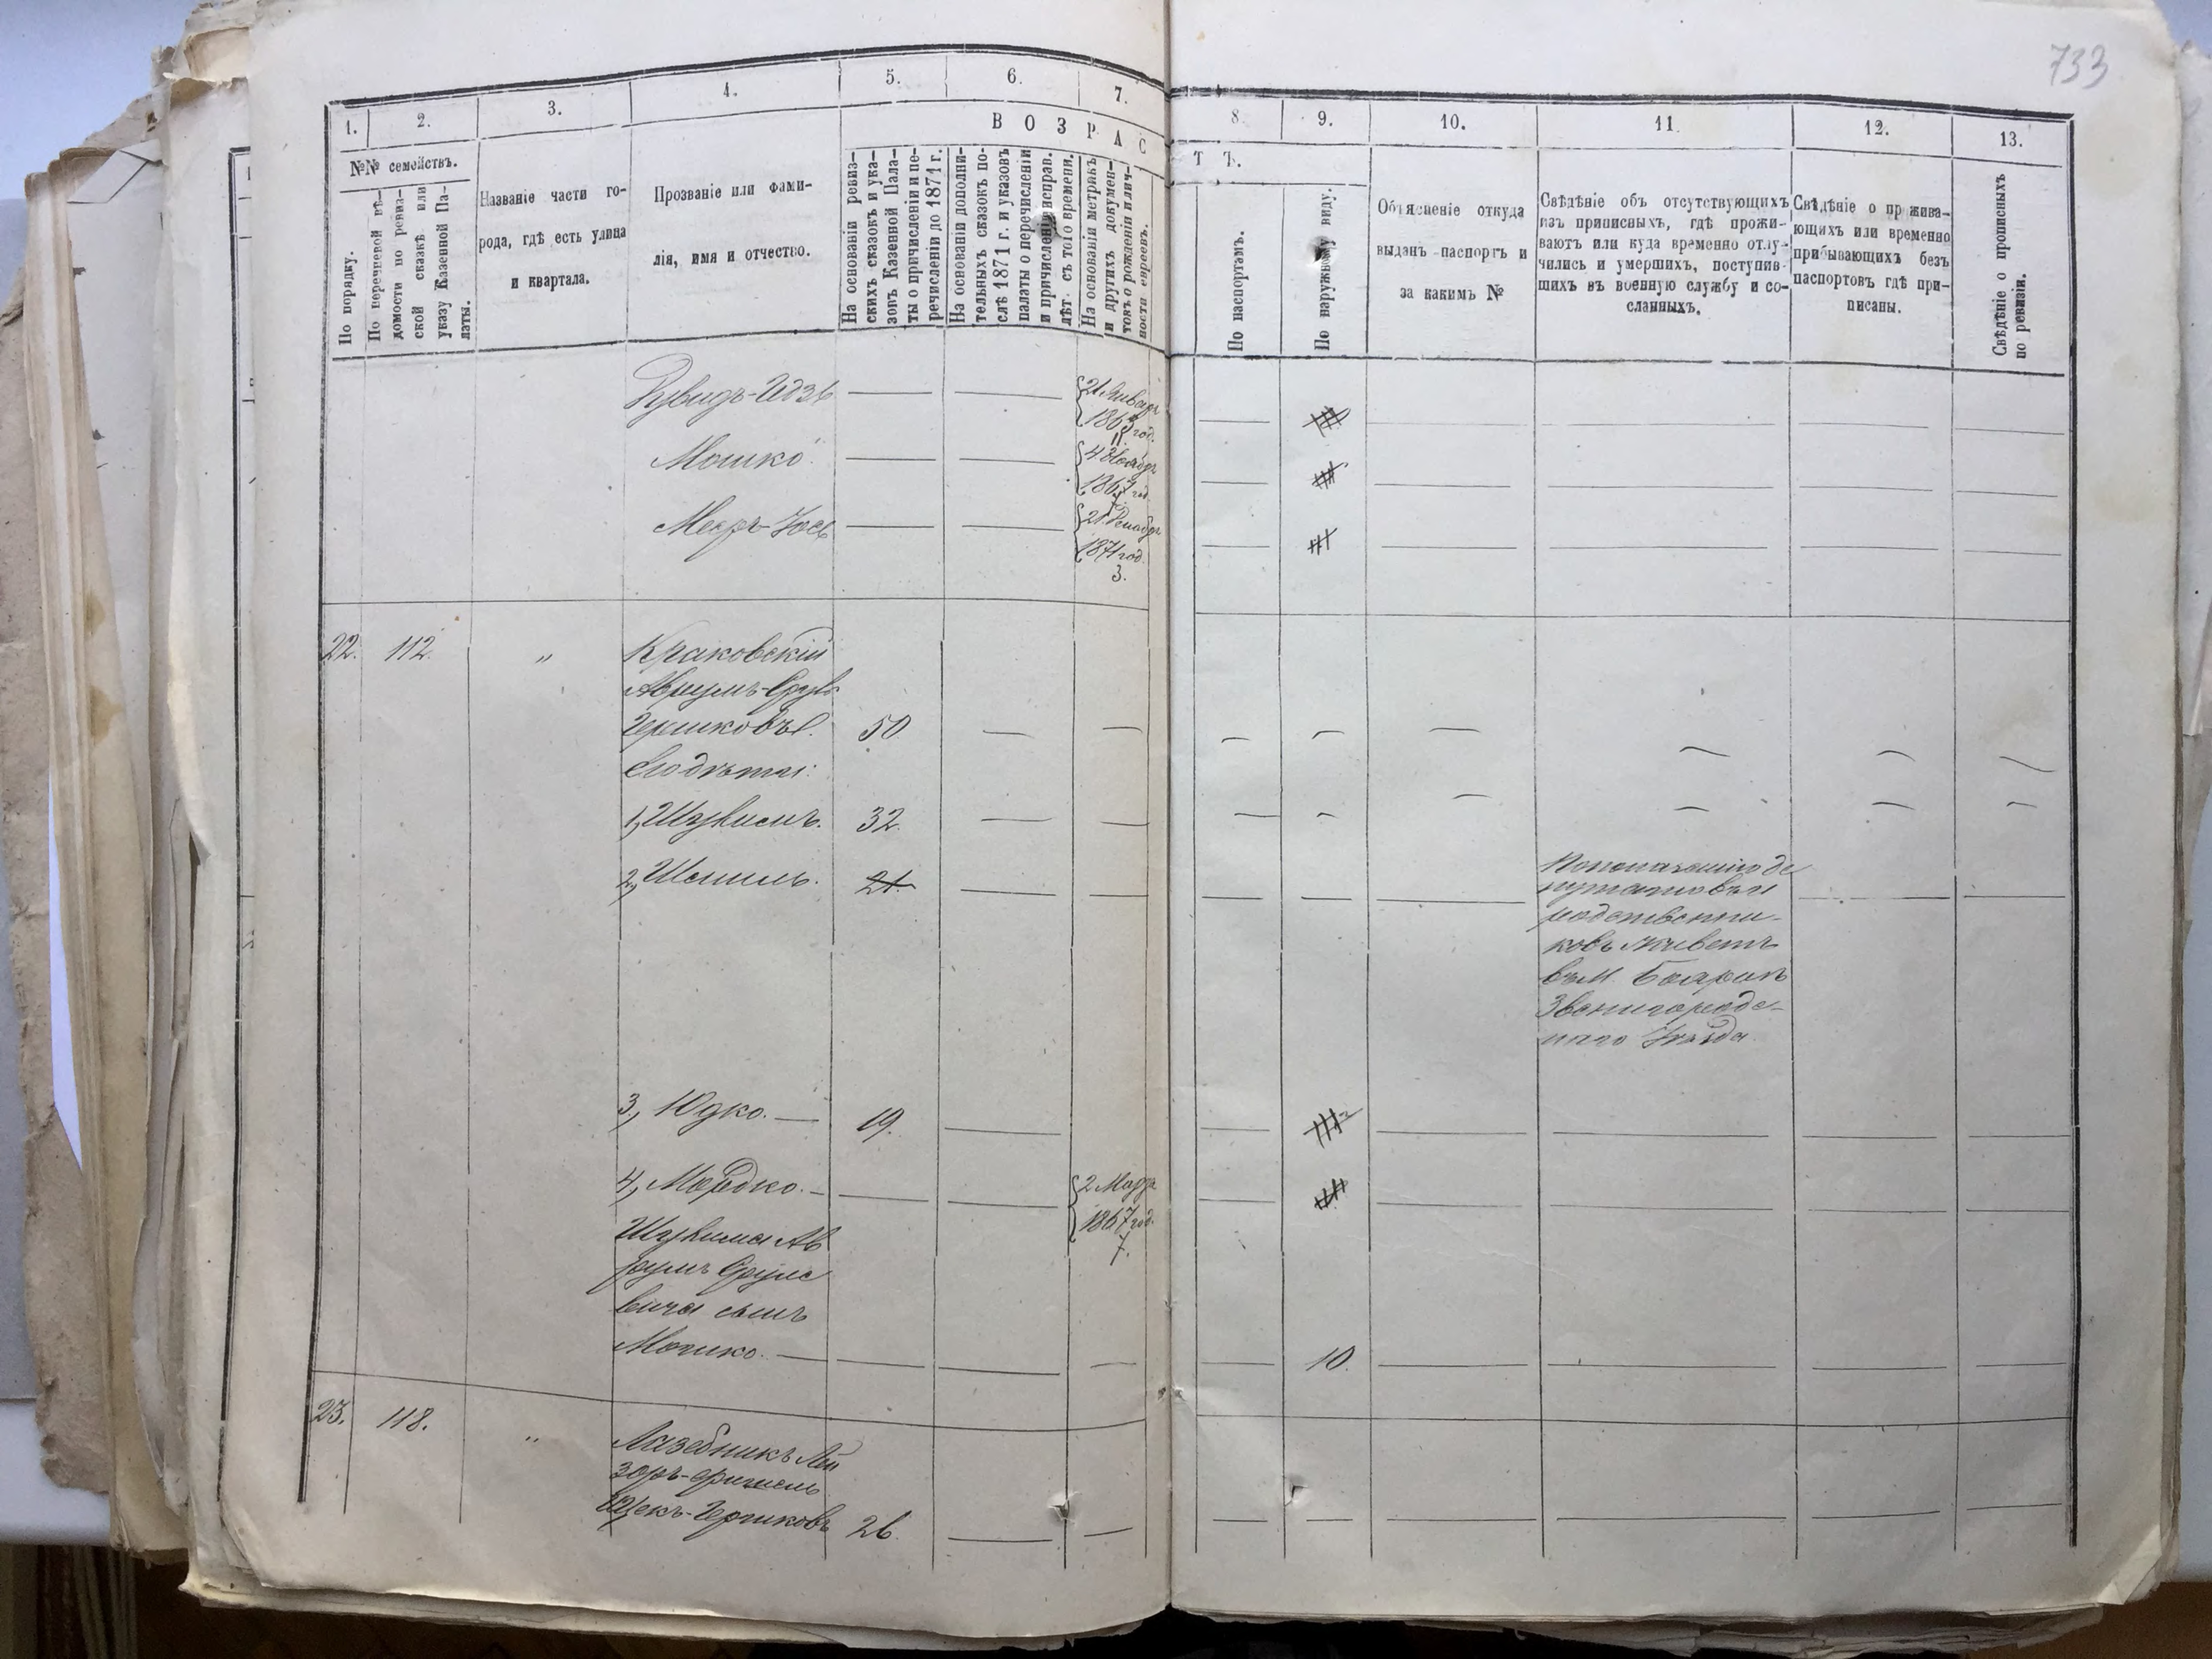 733
1.
2.
3.
4.
5.
6.
7.
8.
9.
10.
11.
12.
13.
ВОЗРАСТЪ.
№№ семействъ.
По порядку.
По перечневой вѣ-
домости по ревиз-
ской сказкѣ или
указу Казенной Па-
латы.
Названіе части го-
рода, гдѣ есть улица
и квартала.
Прозваніе или фами-
лія, имя и отчество.
На основаніи ревиз-
скихъ сказокъ и ука-
зовъ Казенной Пала-
ты о причисленіи и пе-
речисленіи до 1871 г.
На основаніи дополни-
тельныхъ сказокъ по-
слѣ 1871 г. и указовъ
палаты о перечисленіи
и причисленіи исправ.
лѣт. съ того времени.
На основаніи метрикъ
и другихъ докумен-
товъ о рожденіи и лич-
ности евреевъ.
По паспортамъ.
По наружному виду.
Объясненіе откуда
выданъ паспортъ и
за какимъ №
Свѣдѣніе объ отсутствующихъ
изъ приписныхъ, гдѣ прожи-
ваютъ или куда временно отлу-
чились и умершихъ, поступив-
шихъ въ военную службу и со-
сланныхъ.
Свѣдѣніе о прожива-
ющихъ или временно
прибывающихъ безъ
паспортовъ гдѣ при-
писаны.
Свѣдѣніе о прописныхъ
по ревизіи.
21 Январ
Мошко
4 Нояб
1867 год.
7.
Меер-Іос
21
1871 год
3.
22. 112. "
Краковскій
Аврумъ-Сруль
Гершковъ 50
Его дѣти:
1, 32
2, Шмиль. 21.
По показанію де
путатовъ и
родственни-
ковъ живетъ
въ м. Боярка
Звенигородс-
каго Уѣзда
3, Юдко. 19.
4, Мордко. 2 Мар
1867 год.
7.
Ав
румъ Сруле
вича сынъ
Мошко. 10.
23. 118. "
Лазебникъ Лей
зоръ-
Ицекъ-Гершковъ 26